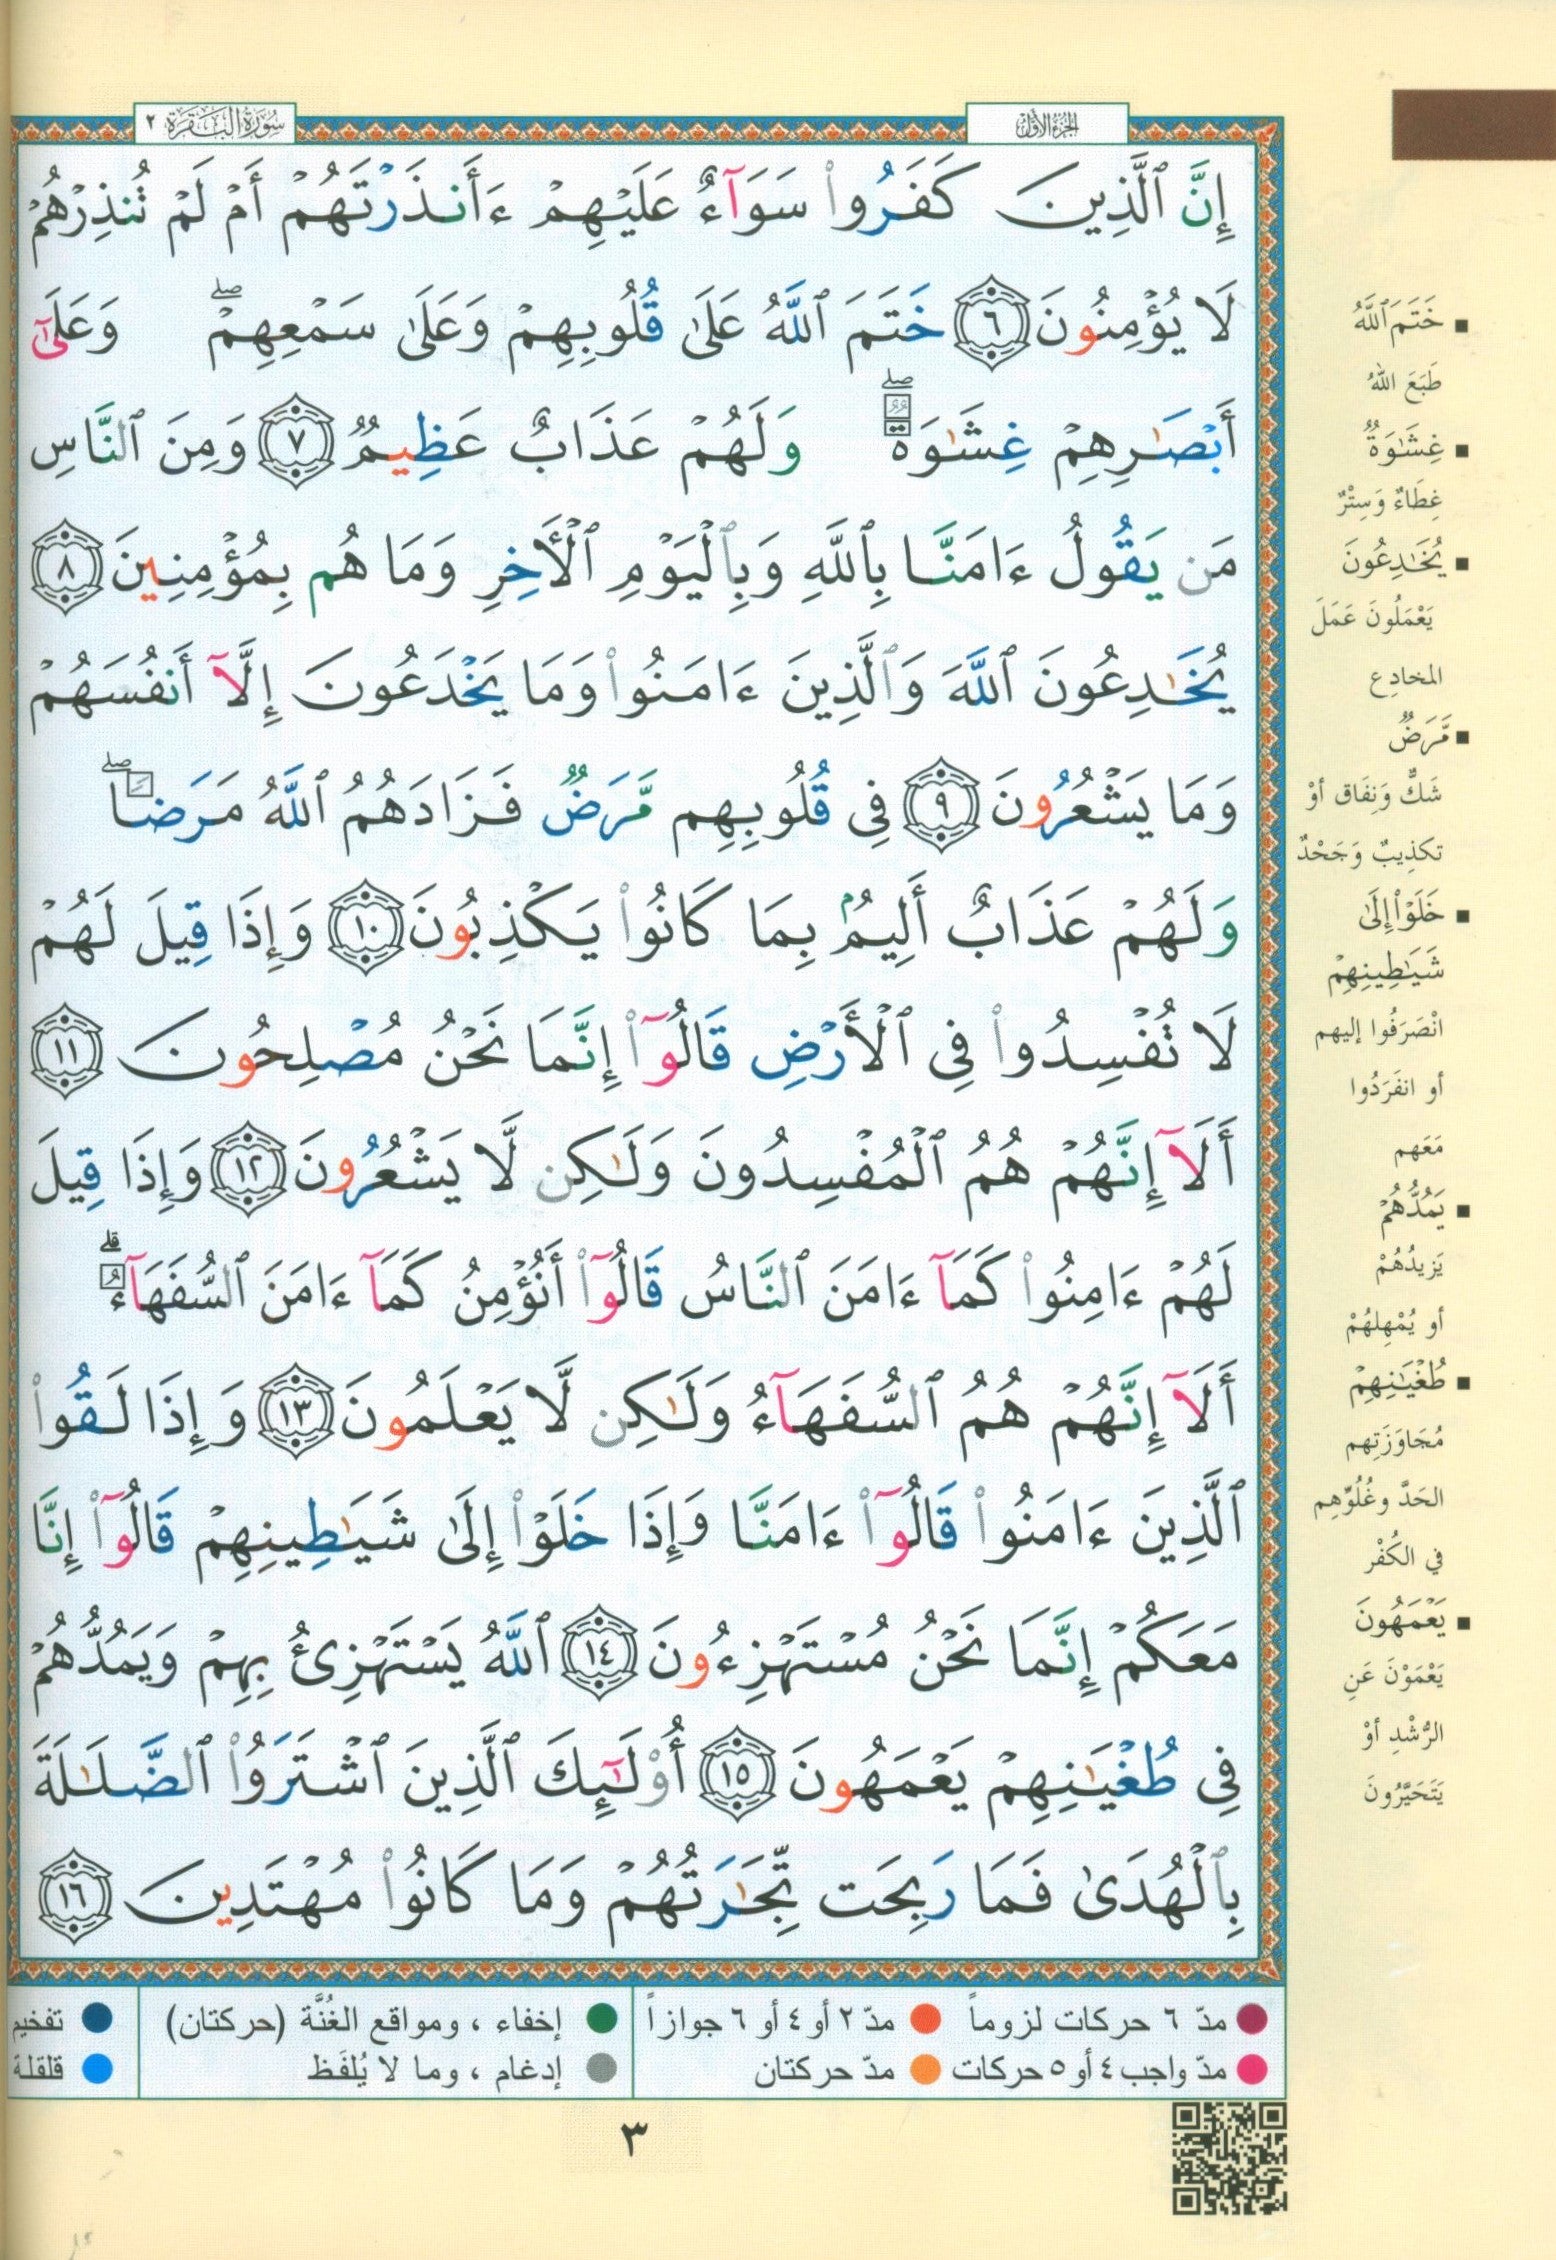 الجزء الأول
سورة البقرة ٢
إِنَّ ٱلَّذِينَ كَفَرُوا۟ سَوَآءٌ عَلَيْهِمْ ءَأَنذَرْتَهُمْ أَمْ لَمْ تُنذِرْهُمْ
لَا يُؤْمِنُونَ ٦ خَتَمَ ٱللَّهُ عَلَىٰ قُلُوبِهِمْ وَعَلَىٰ سَمْعِهِمْ ۖ وَعَلَىٰٓ
أَبْصَـٰرِهِمْ غِشَـٰوَةٌ ۖ وَلَهُمْ عَذَابٌ عَظِيمٌ ٧ وَمِنَ ٱلنَّاسِ
مَن يَقُولُ ءَامَنَّا بِٱللَّهِ وَبِٱلْيَوْمِ ٱلْـَٔاخِرِ وَمَا هُم بِمُؤْمِنِينَ ٨
يُخَـٰدِعُونَ ٱللَّهَ وَٱلَّذِينَ ءَامَنُوا۟ وَمَا يَخْدَعُونَ إِلَّآ أَنفُسَهُمْ
وَمَا يَشْعُرُونَ ٩ فِى قُلُوبِهِم مَّرَضٌ فَزَادَهُمُ ٱللَّهُ مَرَضًا ۖ
وَلَهُمْ عَذَابٌ أَلِيمٌۢ بِمَا كَانُوا۟ يَكْذِبُونَ ١٠ وَإِذَا قِيلَ لَهُمْ
لَا تُفْسِدُوا۟ فِى ٱلْأَرْضِ قَالُوٓا۟ إِنَّمَا نَحْنُ مُصْلِحُونَ ١١
أَلَآ إِنَّهُمْ هُمُ ٱلْمُفْسِدُونَ وَلَـٰكِن لَّا يَشْعُرُونَ ١٢ وَإِذَا قِيلَ
لَهُمْ ءَامِنُوا۟ كَمَآ ءَامَنَ ٱلنَّاسُ قَالُوٓا۟ أَنُؤْمِنُ كَمَآ ءَامَنَ ٱلسُّفَهَآءُ ۗ
أَلَآ إِنَّهُمْ هُمُ ٱلسُّفَهَآءُ وَلَـٰكِن لَّا يَعْلَمُونَ ١٣ وَإِذَا لَقُوا۟
ٱلَّذِينَ ءَامَنُوا۟ قَالُوٓا۟ ءَامَنَّا وَإِذَا خَلَوْا۟ إِلَىٰ شَيَـٰطِينِهِمْ قَالُوٓا۟ إِنَّا
مَعَكُمْ إِنَّمَا نَحْنُ مُسْتَهْزِءُونَ ١٤ ٱللَّهُ يَسْتَهْزِئُ بِهِمْ وَيَمُدُّهُمْ
فِى طُغْيَـٰنِهِمْ يَعْمَهُونَ ١٥ أُو۟لَـٰٓئِكَ ٱلَّذِينَ ٱشْتَرَوُا۟ ٱلضَّلَـٰلَةَ
بِٱلْهُدَىٰ فَمَا رَبِحَت تِّجَـٰرَتُهُمْ وَمَا كَانُوا۟ مُهْتَدِينَ ١٦
■ خَتَمَ ٱللَّهُ
طَبَعَ اللهُ
■ غِشَـٰوَةٌ
غِطَاءٌ وَسِتْرٌ
■ يُخَـٰدِعُونَ
يَعْمَلُونَ عَمَلَ
المخادِع
■ مَّرَضٌ
شَكٌّ وَنِفَاق أوْ
تكذِيبٌ وَجَحْدٌ
■ خَلَوْا۟ إِلَىٰ
شَيَـٰطِينِهِمْ
انْصَرَفُوا إليهم
أو انفَرَدُوا
مَعَهم
■ يَمُدُّهُمْ
يَزيدُهُمْ
أو يُمْهِلهُمْ
■ طُغْيَـٰنِهِمْ
مُجَاوَزَتِهم
الحَدَّ وغُلُوِّهِم
في الكُفْر
■ يَعْمَهُونَ
يَعْمَوْنَ عَنِ
الرُّشْدِ أوْ
يَتَحَيَّرُونَ
مدّ ٦ حركات لزوماً
مدّ ٢ أو ٤ أو ٦ جوازاً
إخفاء ، ومواقع الغُنَّة (حركتان)
تفخيم
مدّ واجب ٤ أو ٥ حركات
مدّ حركتان
إدغام ، وما لا يُلفَظ
قلقلة
٣